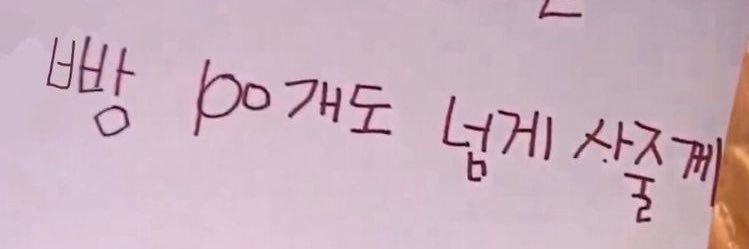 빵 100개도 넘게 사줄께